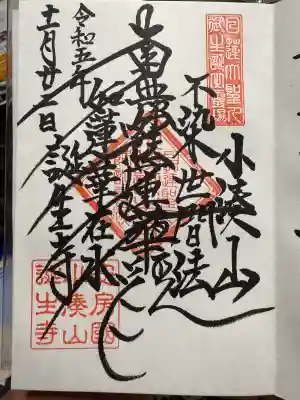 日蓮大聖人
御生誕之霊場
小湊山
不染世間法
南無妙法蓮華経
如蓮華在水
令和五年
十二月廿二日
誕生寺
安房國
小湊山
誕生寺